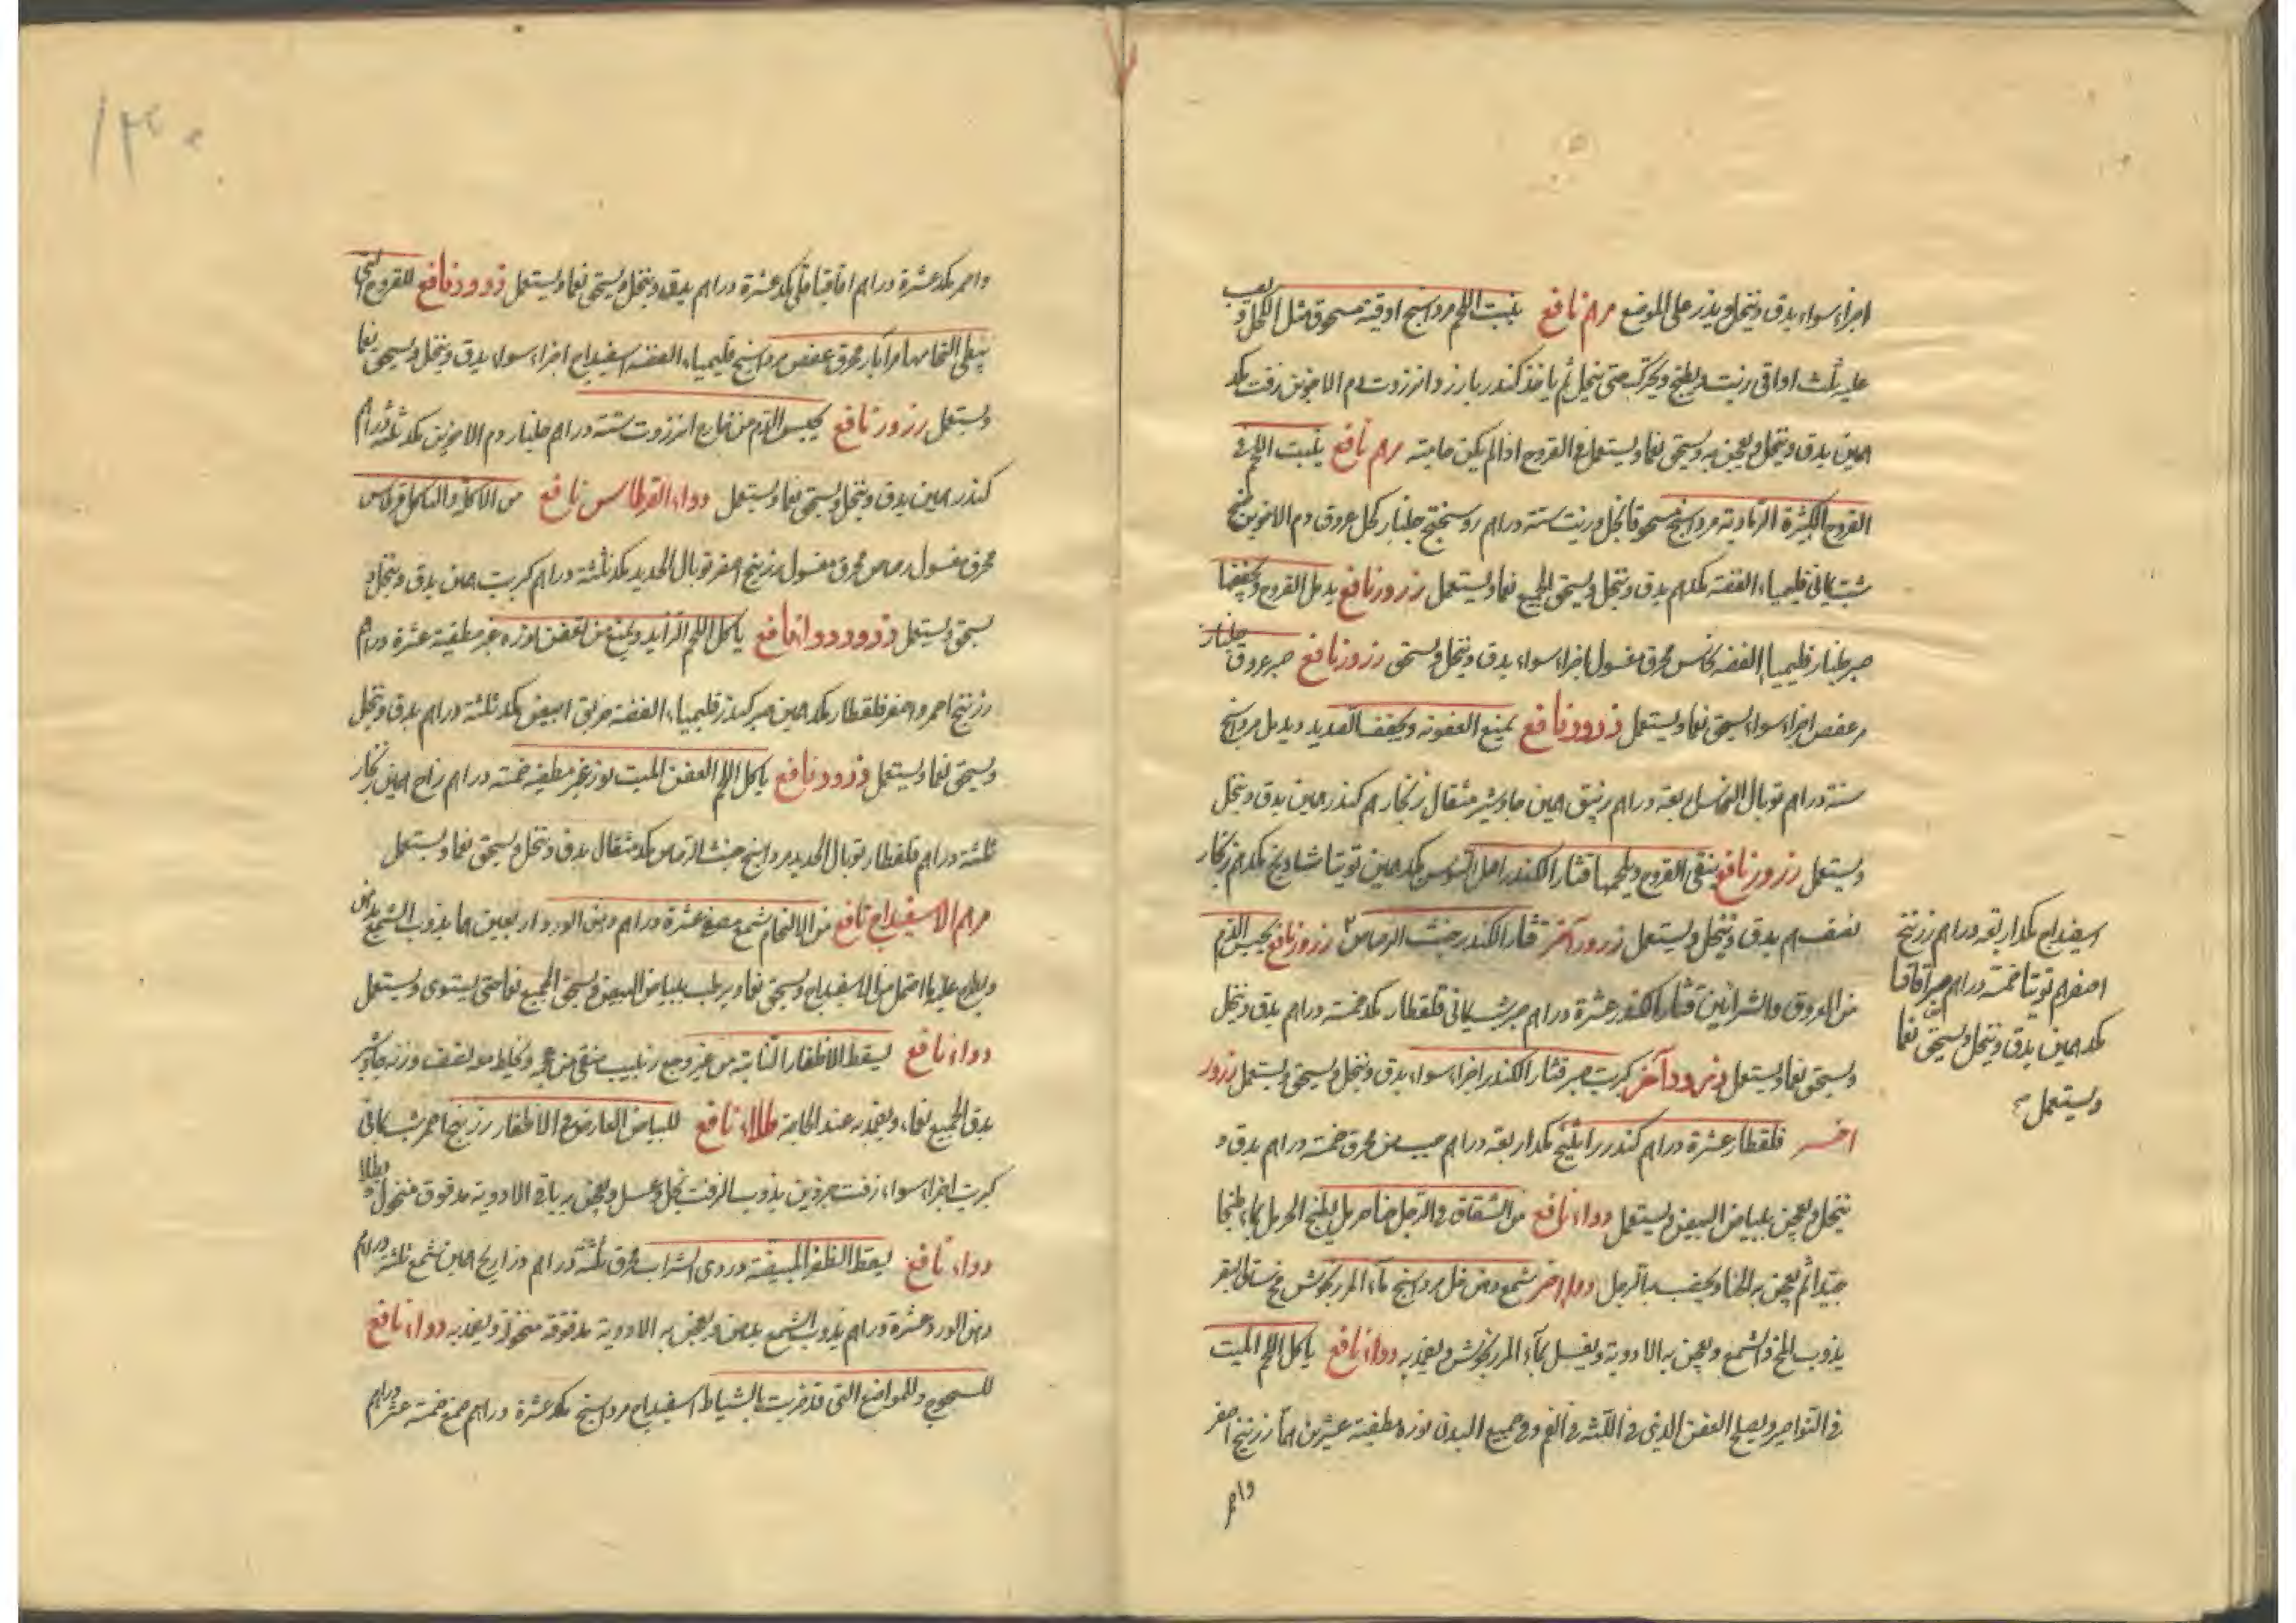 اجزاء سواء يدق وينخل ويذر على الموضع مرهم نافع ينبت اللحم مرداسنج اوقية مسحوق مثل الكحل ويصب
عليه ثلث اواقى زيت ويطبخ ويحرك حتى ينحل ثم ياخذ كندر بارزد انزروت دم الاخوين زفت مكد
همين يدق وينخل ويعجن به ويسحق نعما ويستعمل فى القروح اذا لم يكن حامية مرهم نافع ينبت اللحم فى
القروح الكثيرة الرمادية مرداسنج مسحوقا بخل وزيت ستة دراهم روسختج جلنار كحل عروق دم الاخوين
شب يمانى قليمياء الفضة مكد هم يدق وينخل ويسحق الجميع نعما ويستعمل ذرور نافع يدمل القروح ويجففها
صبر جلنار قليمياء الفضة نحاس محرق مغسول اجزاء سواء يدق وينخل ويسحق ذرور نافع صبر عروق جلنار
مر عفص اجزاء سواء يسحق نعما ويستعمل ذرور نافع يمنع العفونة ويجفف الصديد ويدمل مرداسنج
ستة دراهم توبال النحاس اربعة دراهم زيبق همين جاوشير مثقال زنجار هم كندر همين يدق وينخل
ويستعمل ذرور نافع ينقى القروح ويلحمها قشار الكندر اصل السوس مكد همين توتيا شادنج مكد هم زنجار
نصف هم يدق وينخل ويستعمل ذرور آخر قشار الكندر خبث الرصاص ذرور نافع يحبس الدم
من العروق والشرائين قشار الكندر عشرة دراهم صبر شب يمانى قلقطار مكد خمسة دراهم يدق وينخل
ويسحق نعما ويستعمل ذرور آخر كبريت صبر قشار الكندر اجزاء سواء يدق وينخل ويسحق ويستعمل ذرور
اخر قلقطار عشرة دراهم كندر راتينج مكد اربعة دراهم جبسين محرق خمسة دراهم يدق و
ينخل ويعجن ببياض البيض ويستعمل دواء نافع من الشقاق فى الرجل حنا حرمل يطبخ الحرمل بماء طبخا
جيدا ثم يعجن به الحنا ويخضب به الرجل دواء اخر شمع دهن خل مرداسنج ماء المرزنجوش مخ ساق البقر
يذوب المخ والشمع ويعجن به الادوية ويغسل بماء المرزنجوش ويضمد به دواء نافع ياكل اللحم الميت
فى النواصير ويصلح العفن الذى فى اللثة فى الفم وفى جميع البدن نوره مطفية عشرين هما زرنيخ اصفر
واحمر
اسفيداج مكد اربعة دراهم زرنيخ
اصفر هم توتيا خمسة دراهم صبر اقاقيا
مكد همين يدق وينخل ويسحق نعما
ويستعمل
واحمر مكد عشرة دراهم اقاقيا قلى مكد عشرة دراهم يدق وينخل ويسحق نعما ويستعمل ذرور نافع للقروح التى
يبطى التحامها مر آبار محرق عفص مرداسنج قليمياء الفضة اسفيداج اجزاء سواء يدق وينخل ويسحق نعما
ويستعمل ذرور نافع يحبس الدم من خارج انزروت ستة دراهم جلنار دم الاخوين مكد ثلثة دراهم
كندر همين يدق وينخل ويسحق نعما ويستعمل دواء القرطاس نافع من الاكلة والتاكل قرطاس
محرق مغسول رصاص محرق مغسول زرنيخ اصفر توبال الحديد مكد ثلثة دراهم كبريت همين يدق وينخل و
يسحق ويستعمل ذرور دواء نافع ياكل اللحم الزايد ويمنع من التعفن نوره غير مطفية عشرة دراهم
زرنيخ احمر واصفر قلقطار مكد همين صبر كندر قليمياء الفضة خربق ابيض مكد ثلثة دراهم يدق وينخل
ويسحق نعما ويستعمل ذرور نافع ياكل اللحم العفن الميت نوره غير مطفية خمسة دراهم زاج همين زنجار
ثلثة دراهم قلقطار توبال الحديد مرداسنج خبث الرصاص مكد مثقال يدق وينخل ويسحق نعما ويستعمل
مرهم الاسفيداج نافع من الالتحام شمع مصفى عشرة دراهم دهن الورد اربعين هما يذوب الشمع بدهن
ويطرح عليه ما احتمل من الاسفيداج ويسحق نعما ويرطب ببياض البيض ويسحق الجميع نعما حتى يستوى ويستعمل
دواء نافع يسقط الاظفار النابتة من غير وجع زبيب منقى من عجم ويخلط معه نصف وزنه جاوشير
يدق الجميع نعماء ويضمد به عند الحاجة طلاء نافع للبياض العارض فى الاظفار زرنيخ احمر شب يمانى
كبريت اجزاء سواء زفت جزوين يذوب الزفت بخل وعسل ويعجن به باقى الادوية مدقوق منخول ويطلا
دواء نافع يسقط الظفر المبيضة دردى الشراب محرق ثلثة دراهم ذراريح همين شمع ثلثة دراهم
دهن الورد عشرة دراهم يذوب الشمع بدهن ويعجن به الادوية مدقوقة منخولة ويضمد به دواء نافع
للسحوج وللمواضع التى قد ضربت بالسياط اسفيداج مرداسنج مكد عشرة دراهم صمغ خمسة عشر دراهم